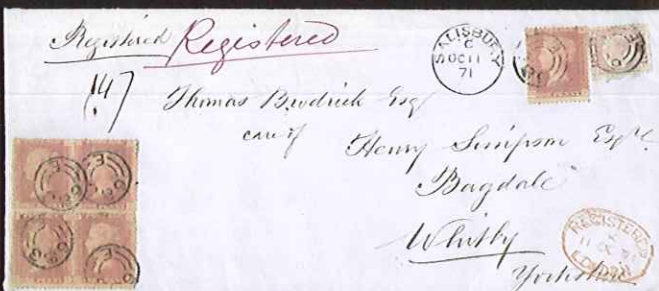 Registered Registered
SALISBURY
C
OC 11
71
Thomas Brodrick Esqr
care of
Henry Simpson Esqre
Bagdale
Whitby
Yorkshire
REGISTERED
11 OC 71
LONDON